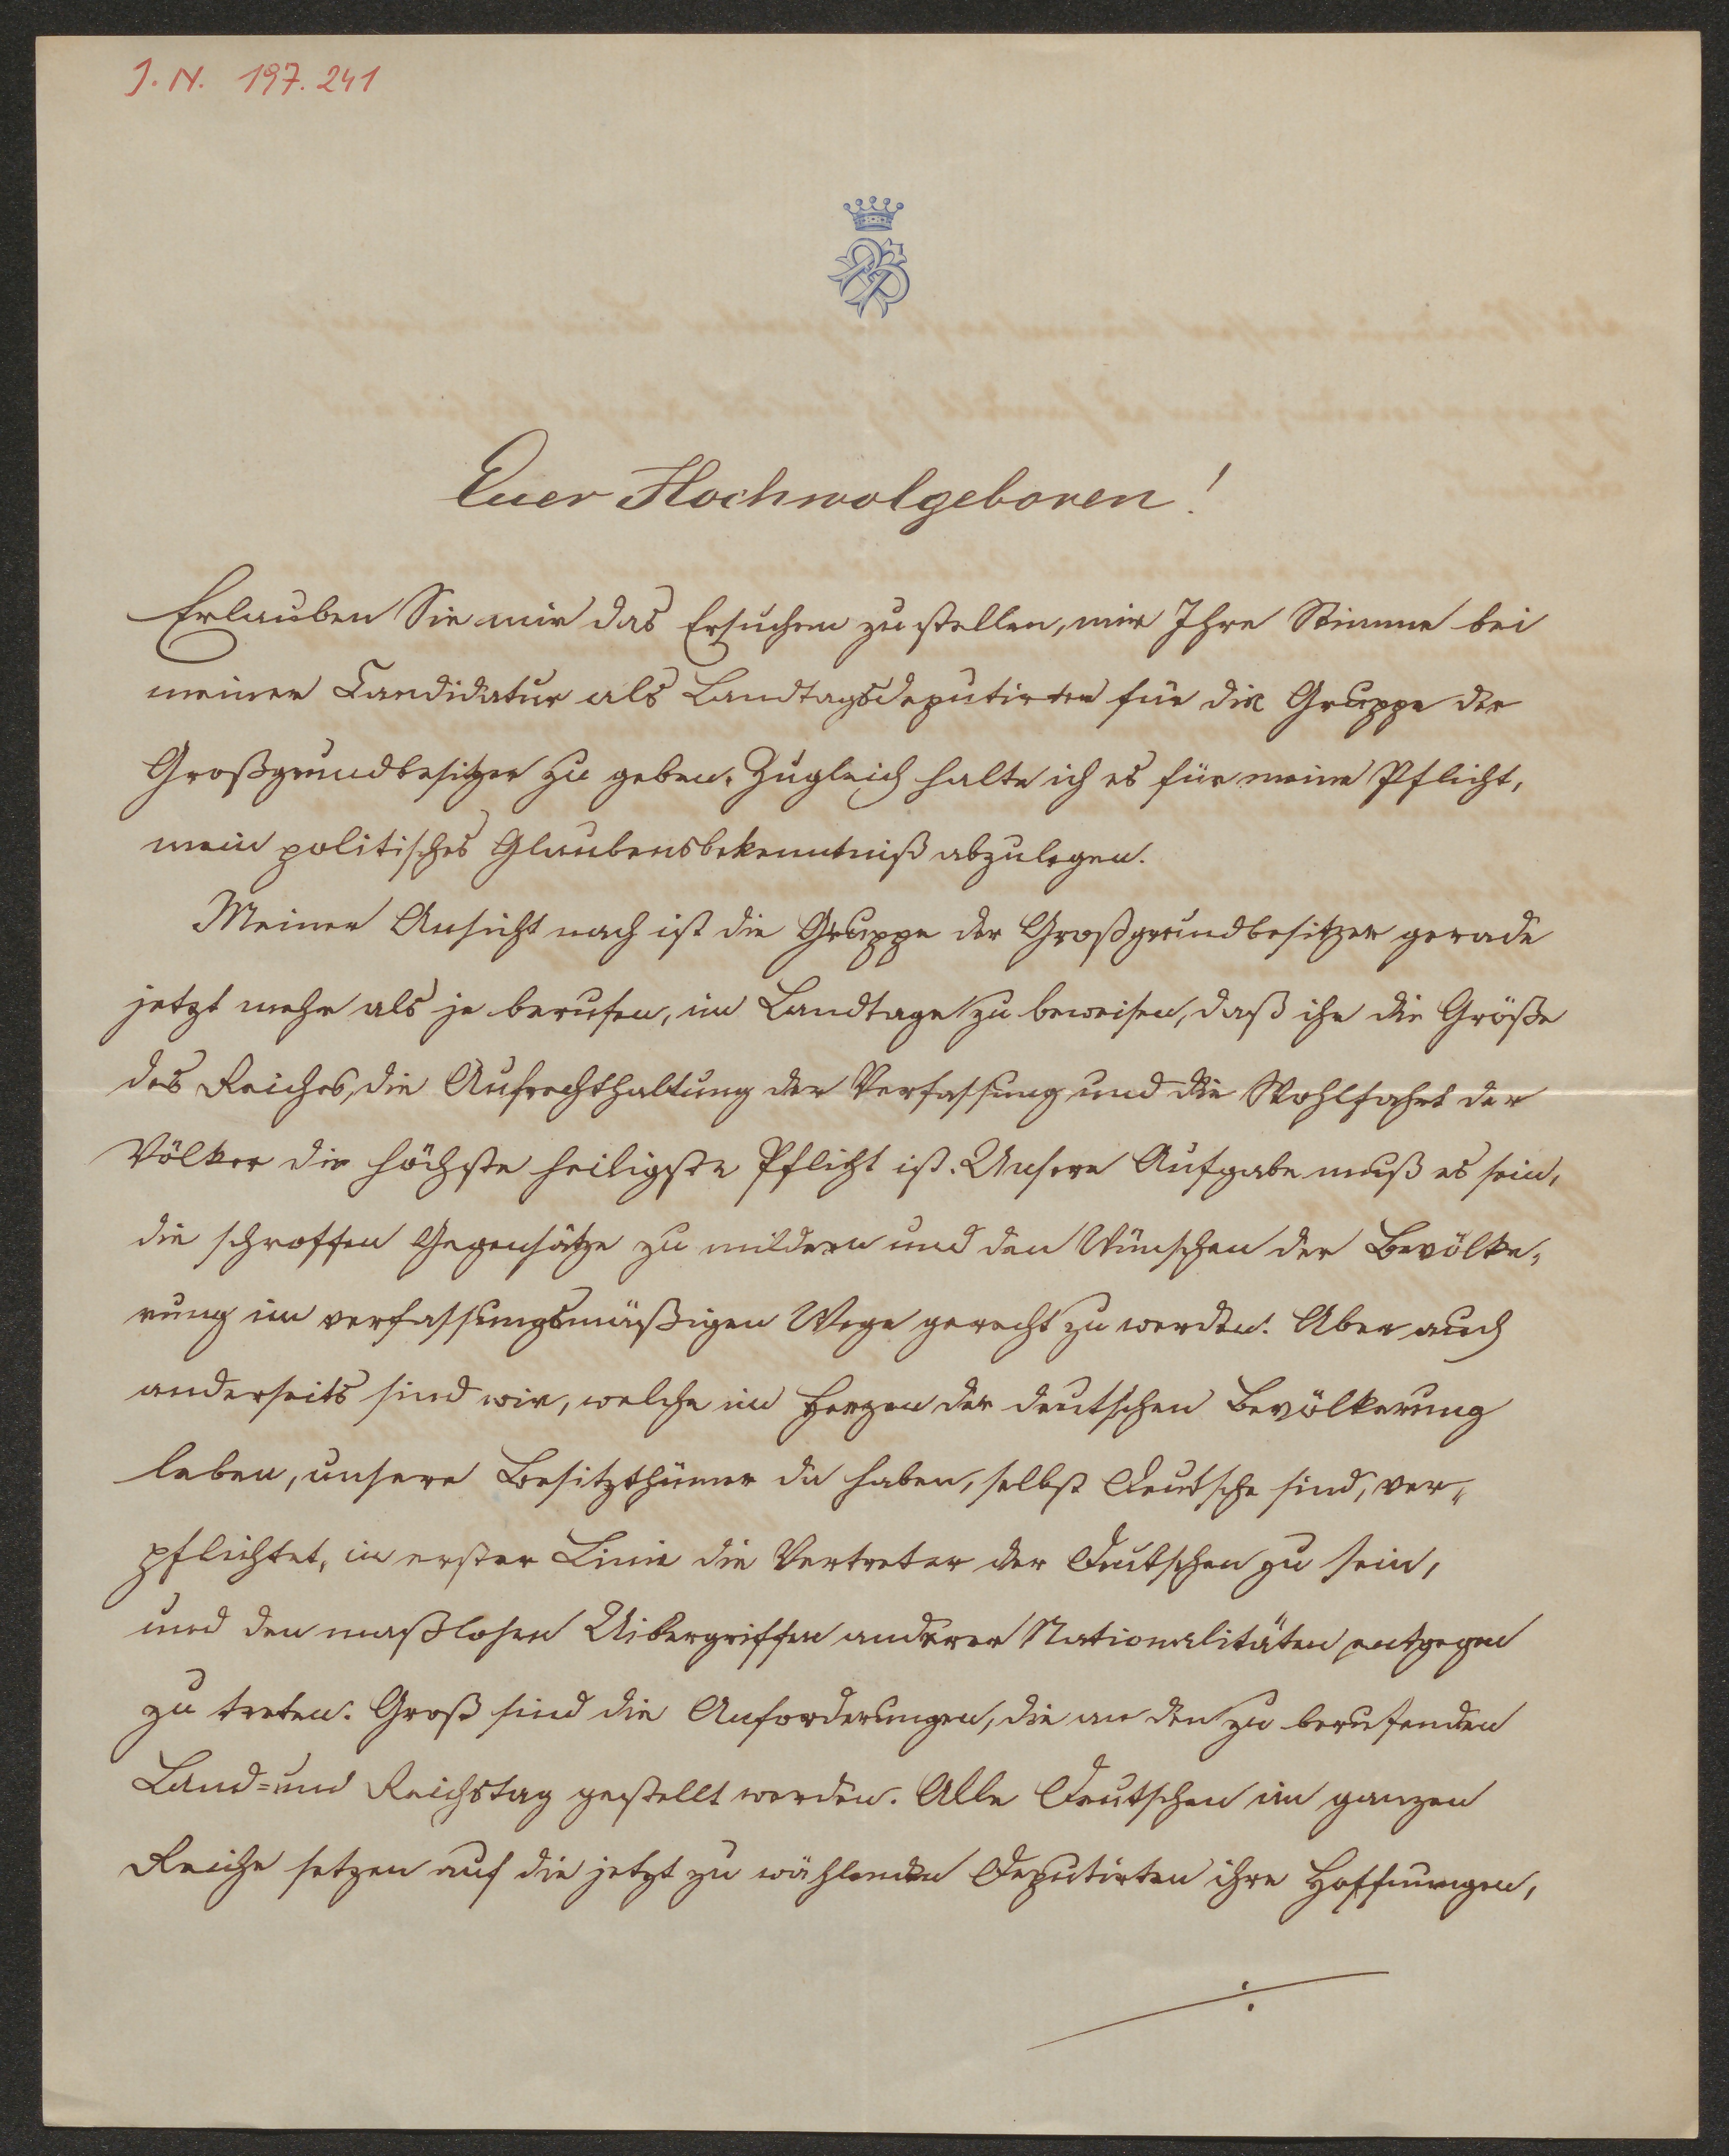 J. N. 197.241
Euer Hochwolgeboren!
Erlauben Sie mir das Ersuchen zu stellen, mir Ihre Stimme bei
meiner Candidatur als Landtagsdeputirter für die Gruppe der
Großgrundbesitzer zu geben. Zugleich halte ich es für meine Pflicht,
mein politisches Glaubensbekenntniß abzulegen.
Meiner Ansicht nach ist die Gruppe der Großgrundbesitzer gerade
jetzt mehr als je berufen, im Landtage zu beweisen, daß ihr die Größe
des Reiches, die Aufrechthaltung der Verfassung und die Wohlfahrt der
Völker die höchste heiligste Pflicht ist. Unsere Aufgabe muß es sein,
die schroffen Gegensätze zu mildern und den Wünschen der Bevölke-
rung im verfassungsmäßigen Wege gerecht zu werden. Aber auch
anderseits sind wir, welche im Herzen der deutschen Bevölkerung
leben, unsere Besitzthümer da haben, selbst Deutsche sind, ver-
pflichtet, in erster Linie die Vertreter der Deutschen zu sein,
und den maßlosen Uibergriffen anderer Nationalitäten entgegen
zu treten. Groß sind die Anforderungen, die an den zu berufenden
Land- und Reichstag gestellt werden. Alle Deutschen im ganzen
Reiche setzen auf die jetzt zu wählenden Deputirten ihre Hoffnungen,